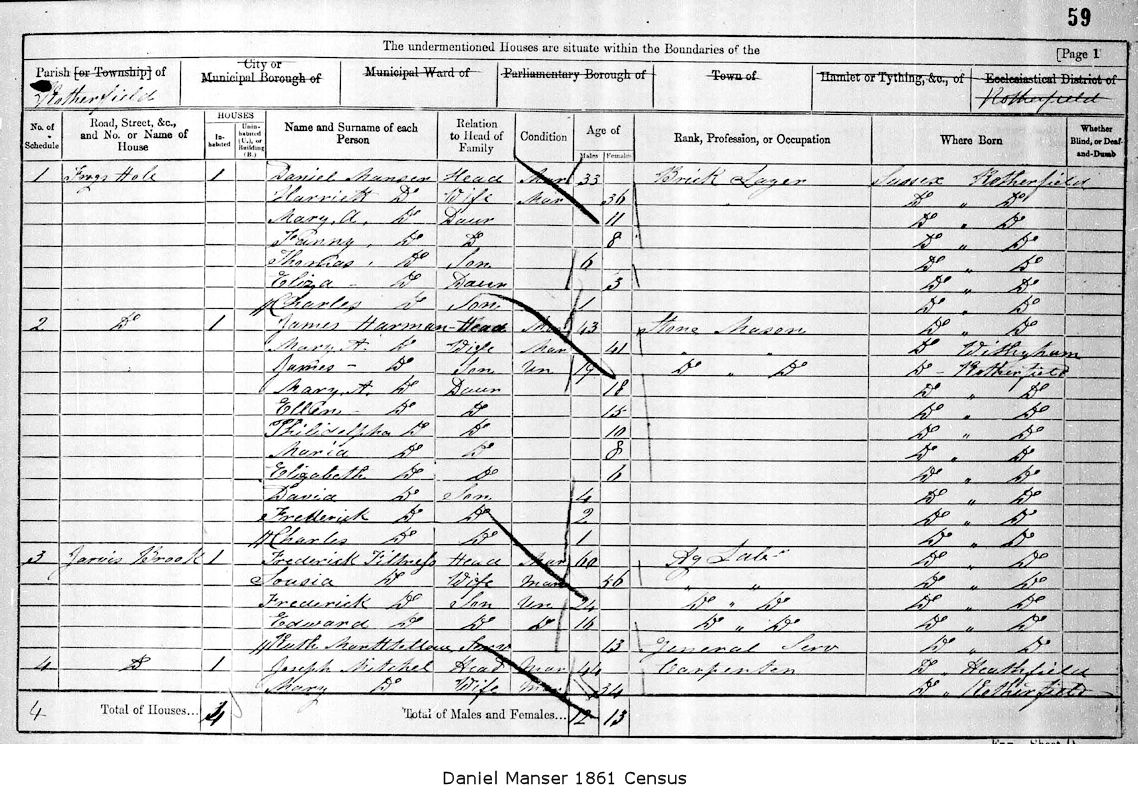 59
The undermentioned Houses are situate within the Boundaries of the
[Page 1
Parish [or Township] of Rotherfield
City or Municipal Borough of
Municipal Ward of
Parliamentary Borough of
Town of
Hamlet or Tything, &c., of
Ecclesiastical District of Rotherfield
No. of Schedule
Road, Street, &c., and No. or Name of House
HOUSES
In-habited
Unin-habited (U.), or Building (B.)
Name and Surname of each Person
Relation to Head of Family
Condition
Age of
Males
Females
Rank, Profession, or Occupation
Where Born
Whether Blind, or Deaf-and-Dumb
1 Frogs Hole 1 Daniel Manser Head Mar 33 Brick Layer Sussex Rotherfield
Harriett Do Wife Mar 36 Do " Do
Mary, A, Do Daur 11 Do " Do
Fanny, Do Do 8 Do " Do
Thomas, Do Son 6 Do " Do
Eliza - Do Daur 3 Do " Do
Charles Do Son 1 Do " Do
2 Do 1 James Harman - Head Mar 43 Stone Mason Do " Do
Mary A. Do Wife Mar 41 " " Do Withyham
James - Do Son Un 19 Do " Do Do - Rotherfield
Mary A. Do Daur 18 Do " Do
Ellen - Do Do 15 Do " Do
Do Do 10 Do " Do
Maria Do Do 8 Do " Do
Elizabeth Do Do 6 Do " Do
David Do Son 4 Do " Do
Frederick Do Do 2 Do " Do
Charles Do Do 1 Do " Do
3 Jarvis Brook 1 Frederick Fillness Head Mar 60 Ag Lab Do " Do
Do Wife Mar 56 " " Do " Do
Frederick Do Son Un 24 Do " Do Do " Do
Edward Do Do Do 16 Do " Do Do " Do
Ruth Serv 13 General Serv Do " Do
4 Do 1 Joseph Mitchel Head Mar 44 Carpenter Do Heathfield
Mary Do Wife Mar 34 Do " Rotherfield
4 Total of Houses... 4 Total of Males and Females... 12 13
Daniel Manser 1861 Census